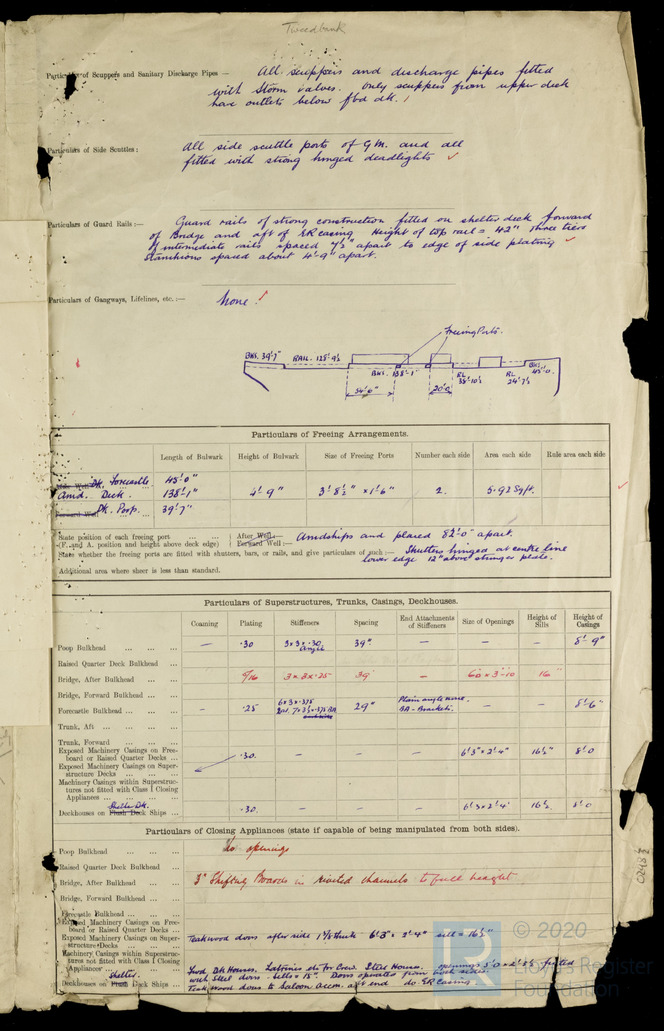 Tweedbank
Particulars of Scuppers and Sanitary Discharge Pipes — All scuppers and discharge pipes fitted
with Storm valves. Only scuppers from upper deck
have outlets below fbd dk.
Particulars of Side Scuttles: All side scuttle ports of G.M. and all
fitted with strong hinged deadlights ✓
Particulars of Guard Rails:— Guard rails of strong construction fitted on shelter deck forward
of Bridge and aft of ER casing Height of top rail = 42" three tiers
of intermediate rails spaced apart to edge of side plating ✓
Stanchions spaced about 4'-9" apart.
Particulars of Gangways, Lifelines, etc.:— None!
Freeing Ports.
BKS. 39'-7" RAIL. 128'-9½ BKS. 138'-1" RL 38'-10½ RL 24'-7½ BKS. 45'-0.
34'-0" 20'-0
Particulars of Freeing Arrangements.
Length of Bulwark Height of Bulwark Size of Freeing Ports Number each side Area each side Rule area each side
Dk. Forecastle 45'-0"
Amd. Deck. 138'-1" 4'-9" 3'-8½" × 1'-6" 2. 5.92 Sq/ft.
Forward Well Dk. Poop. 39'-7"
State position of each freeing port ... ... After Well:— Amidships and placed 82'-0" apart.
(F. and A. position and height above deck edge) Forward Well:—
State whether the freeing ports are fitted with shutters, bars, or rails, and give particulars of such:— Shutters hinged at centre line
lower edge 12" above stringer plate.
Additional area where sheer is less than standard.
Particulars of Superstructures, Trunks, Casings, Deckhouses.
Coaming Plating Stiffeners Spacing End Attachments of Stiffeners Size of Openings Height of Sills Height of Casings
Poop Bulkhead ... ... ... — .30 3×3×.30 Angle 39" — — — 8'-9"
Raised Quarter Deck Bulkhead ...
Bridge, After Bulkhead ... ... 5/16 3×3×.25 39 — 60×3'-10 16"
Bridge, Forward Bulkhead ... ...
Forecastle Bulkhead ... ... ... — .25 6×3×.375 29" Plain angle
BA-Brackets. — — 8'-6"
Trunk, Aft ... ... ... ...
Trunk, Forward ... ... ...
Exposed Machinery Casings on Freeboard or Raised Quarter Decks ... .30. — — — 6'3"×2'4" 16½" 8'-0
Exposed Machinery Casings on Superstructure Decks ... ... ...
Machinery Casings within Superstructures not fitted with Class I Closing
Appliances ... ... ... ...
Deckhouses on Flush Deck Ships ... Shelter Dk. .30. — — — 6'3×2'4" 16½. 8'-0
Particulars of Closing Appliances (state if capable of being manipulated from both sides).
Poop Bulkhead ... ... ... No openings
Raised Quarter Deck Bulkhead ...
Bridge, After Bulkhead ... ... 3" Shifting Boards in riveted channels to full height
Bridge, Forward Bulkhead ... ...
Forecastle Bulkhead ... ... ...
Exposed Machinery Casings on Freeboard or Raised Quarter Decks ...
Exposed Machinery Casings on Superstructure Decks ... ... ... Teakwood doors after side 1⅞ thick 6'3" × 2'-4" sill = 16½"
Machinery Casings within Superstructures not fitted with Class I Closing
Appliances ... ... ...
Deckhouses on Flush Deck Ships ... Shelter. Fwd DK Houses, Latrines etc for Crew. Steel Houses. openings fitted
with Steel doors - sills = 15". Doors operated from both sides.
Teak wood doors to Saloon Accom. aft end do. ER Casing.
© 2020
Lloyd's Register
Foundation